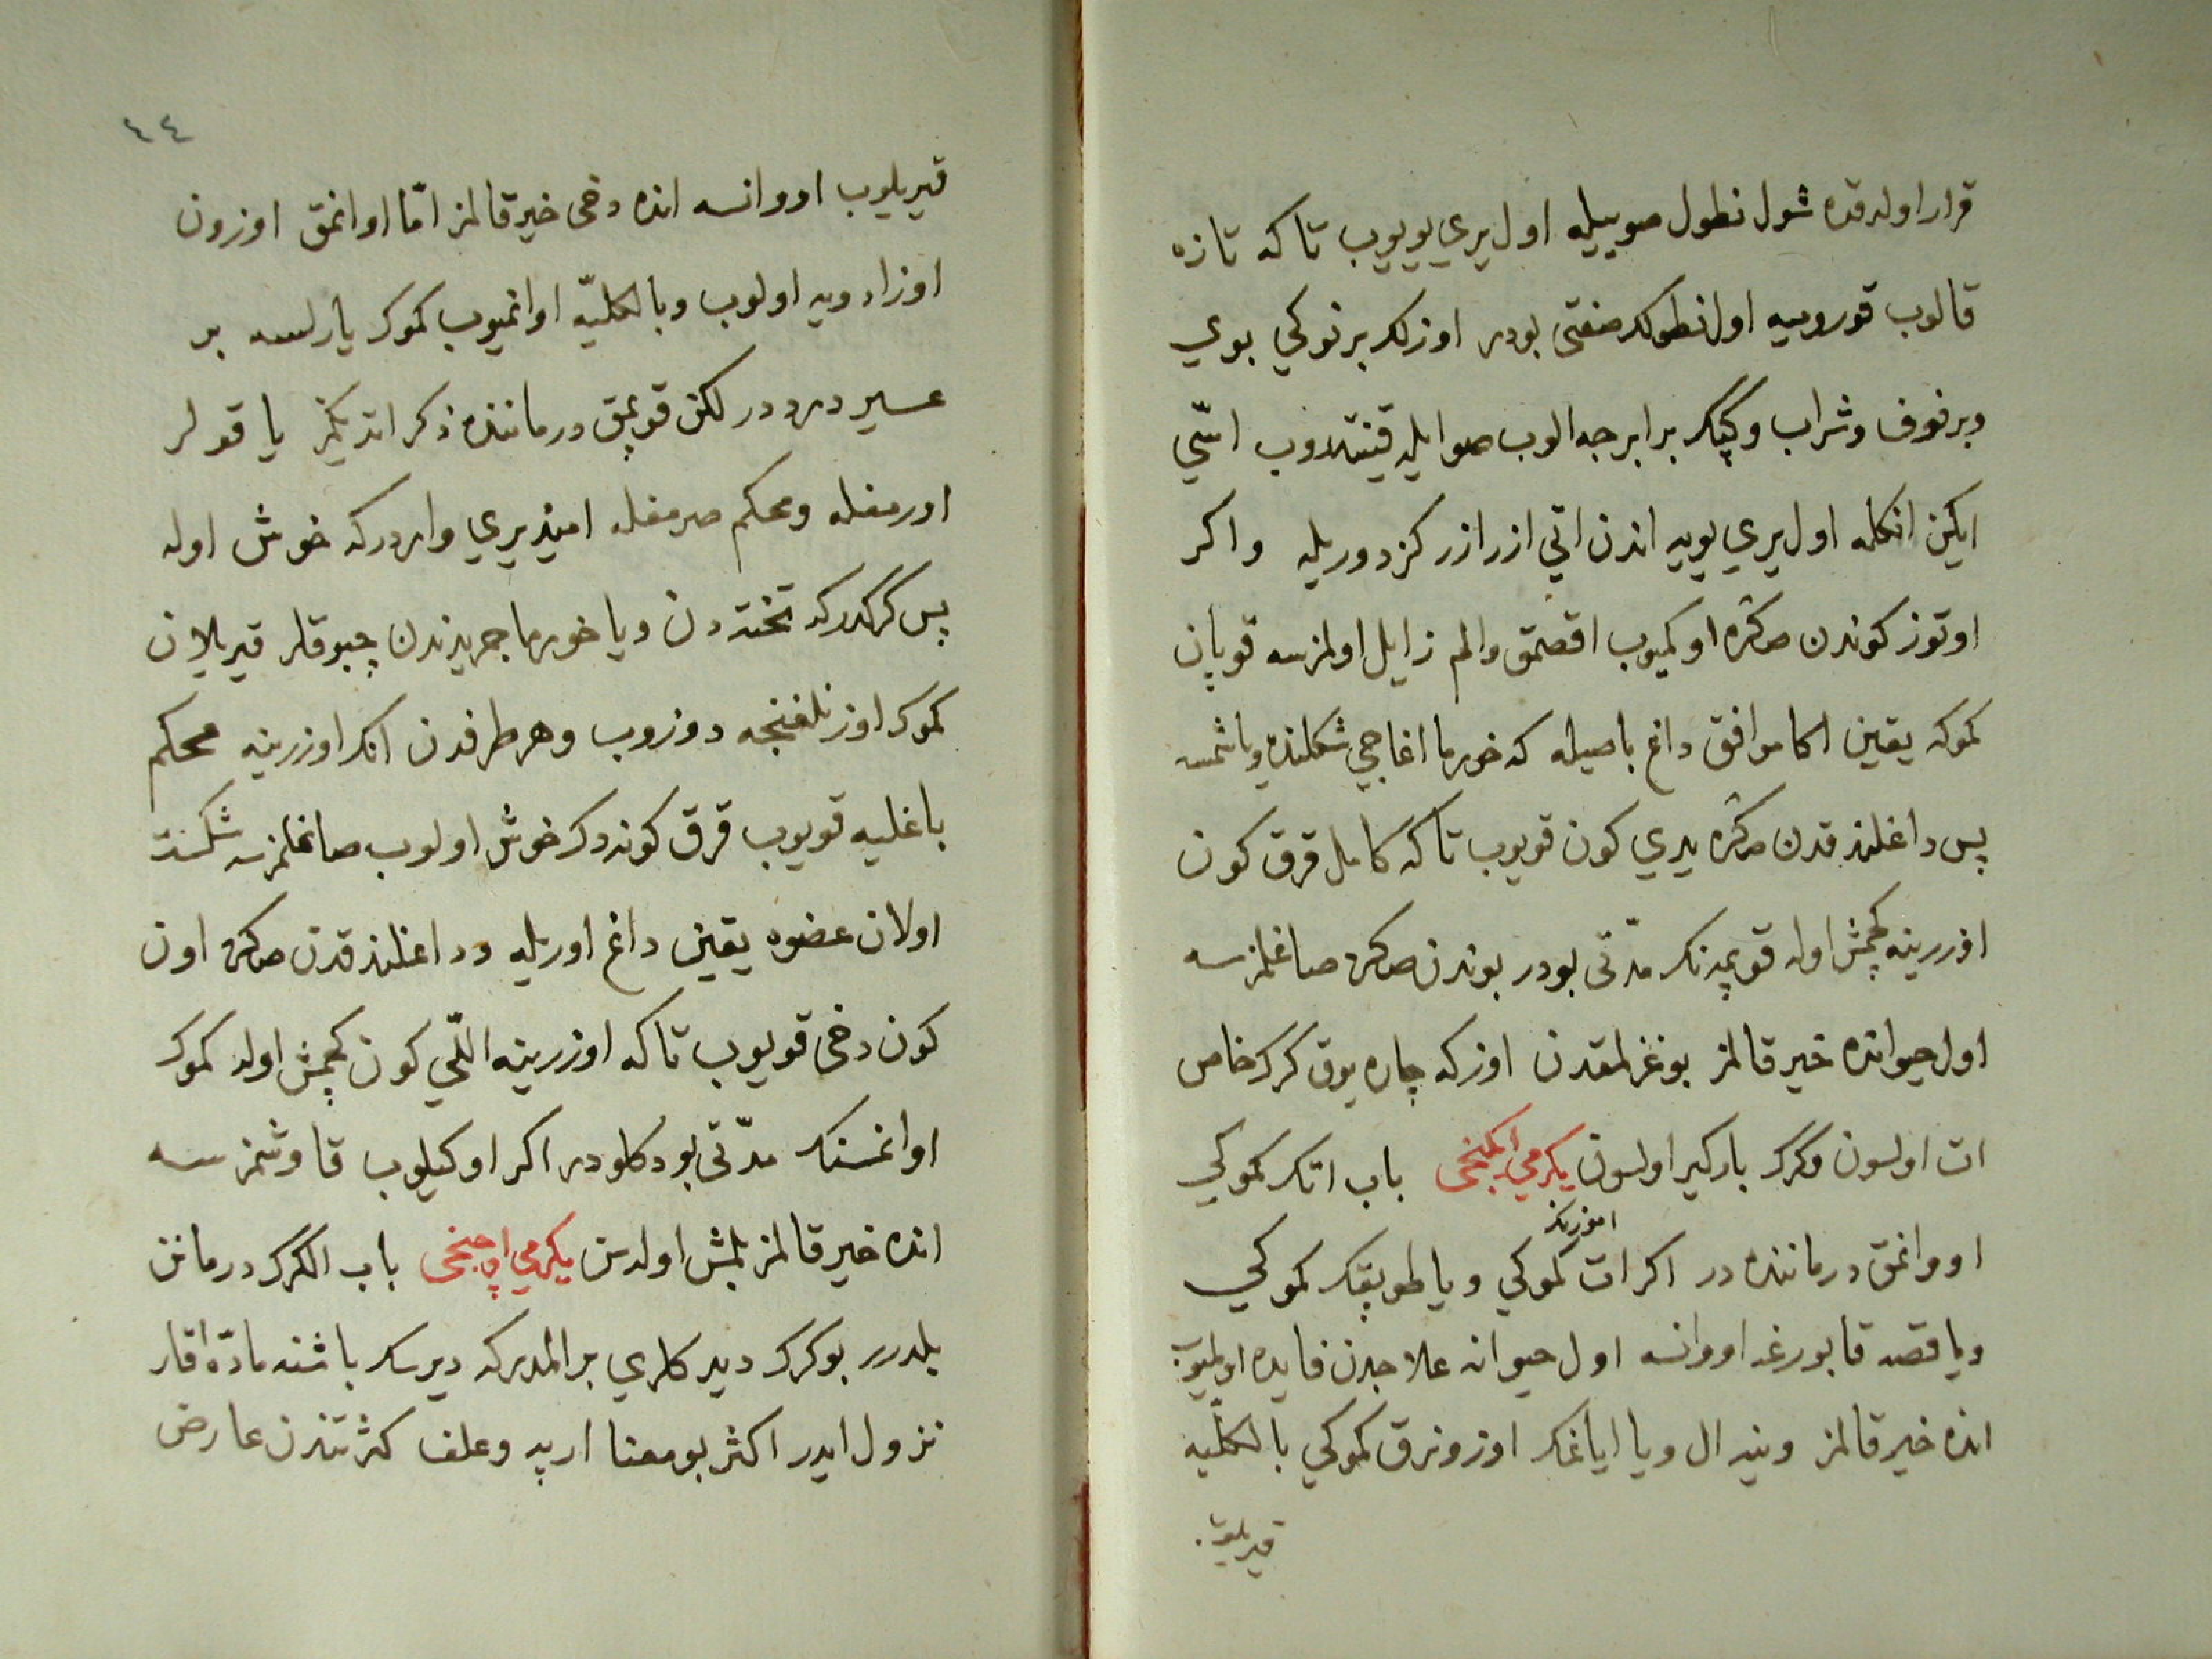 قرار اولدقده شول نطول صوییله اول یری یویوب تا که تازه
قالوب قورومیه اول نطولک صفتی بودر اوزلک برنوکی بوی
وبرنوف وشراب وکپک برابرجه الوب صو ایله قینتدوب اسّی
ایکن انکله اول یری یویه اندن اتی ازر ازر کزدوریله واکر
اوتوز کوندن صکره اوکمیوب اقصمق والم زایل اولمزسه قوپان
کموکه یقین اکا موافق داغ باصیله که خورما اغاجی شکلنده ویا شمسه
پس داغلندقدن صکره یدی کون قویوب تا که کامل قرق کون
اوزرینه کچمش اوله قوپمه نک مدّتی بودر بوندن صکره صاغلمزسه
اول حیوانده خیر قالمز بوغزلمقدن اوزکه چاره یوق کرک خاص
ات اولسون وکرک بارکیر اولسون یکرمی ایکنجی باب اتک کموکی
اوموزینک
اووانمق درماننده در اکر ات کموکی ویا طوپقک کموکی
ویا قصه قابورغه اووانسه اول حیوانه علاجدن فایده اولمیوب
انده خیر قالمز وینه ال ویا ایاغک اوزونرق کموکی بالکلّیه
قیریلوب
٤٤
قیریلوب اووانسه انده دخی خیر قالمز امّا اوانمق اوزون
اوزادویه اولوب وبالکلیّه اوانمیوب کموک یارلسه بر
عسیر درد در لکن قوپمق درماننده ذکر اتدیکمز یاقولر
اورمغله ومحکم صرمغله امید یری واردرکه خوش اوله
پس کرکدرکه تخته دن ویا خورما جریدندن چبوقلر قیریلان
کموک اوزنلغنجه دوزوب وهر طرفدن انک اوزرینه محکم
باغلیه قویوب قرق کوندک خوش اولوب صاغلمزسه شکست
اولان عضوه یقین داغ اوریله وداغلندقدن صکره اون
کون دخی قویوب تا که اوزرینه اللّی کون کچمش اوله کموک
اوانمسنک مدّتی بودکلودر اکر اوکیلوب قاوشمزسه
انده خیر قالمز بلمش اولدن یکرمی اوچنجی باب الکرک درمانن
بلدرر بو کرک دیدکلری بر المدرکه دیرسک باشنه مادّه اقار
نزول ایدر اکثر بو معنا ارپه وعلف کثرتندن عارض